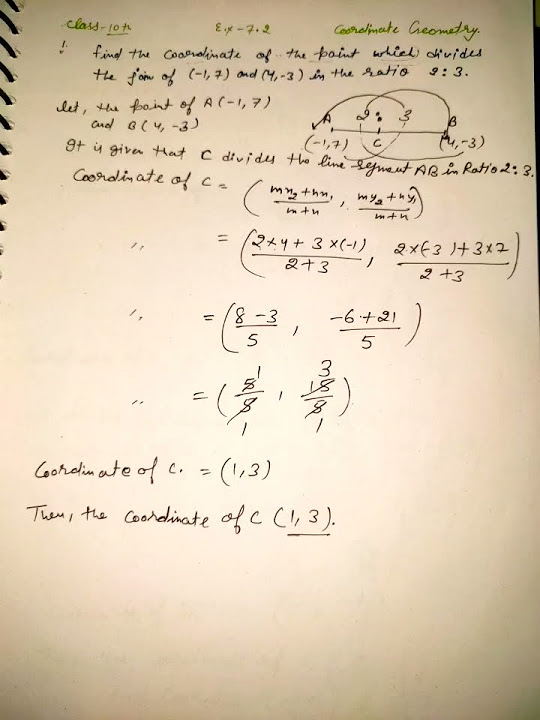 Class-10th Ex-7.2 Coordinate Geometry.
1. find the coordinate of the point which divides
the join of (-1,7) and (4,-3) in the ratio 2:3.
let, the point of A(-1,7)
and B(4,-3)
A 2: 3 B
(-1,7) C (4,-3)
It is given that C divides the line segment AB in Ratio 2:3.
Coordinate of C = (mx₂+nx₁/m+n , my₂+ny₁/m+n)
,, = (2×4+3×(-1)/2+3 , 2×(-3)+3×7/2+3)
,, = (8-3/5 , -6+21/5)
,, = (5/5 1 1 , 15/5 3 1)
Coordinate of C. = (1,3)
Then, the coordinate of C (1,3).